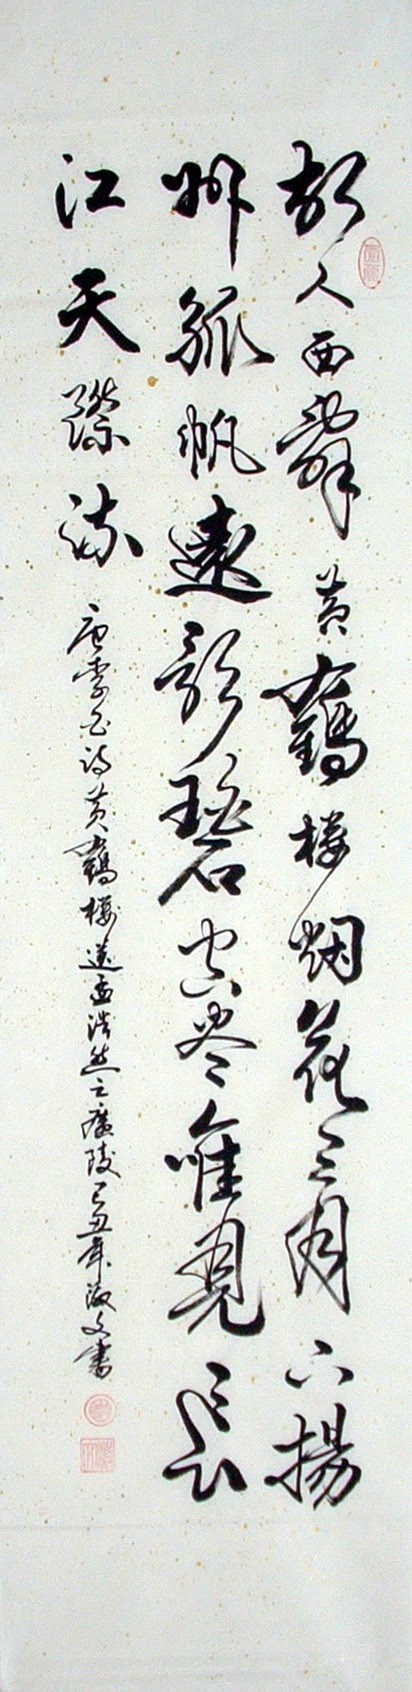 故人西辭黃鶴樓烟花三月下揚
州孤帆遠影碧空尽唯見長
江天際流
唐李白詩黃鶴樓送孟浩然之廣陵己丑年海文書